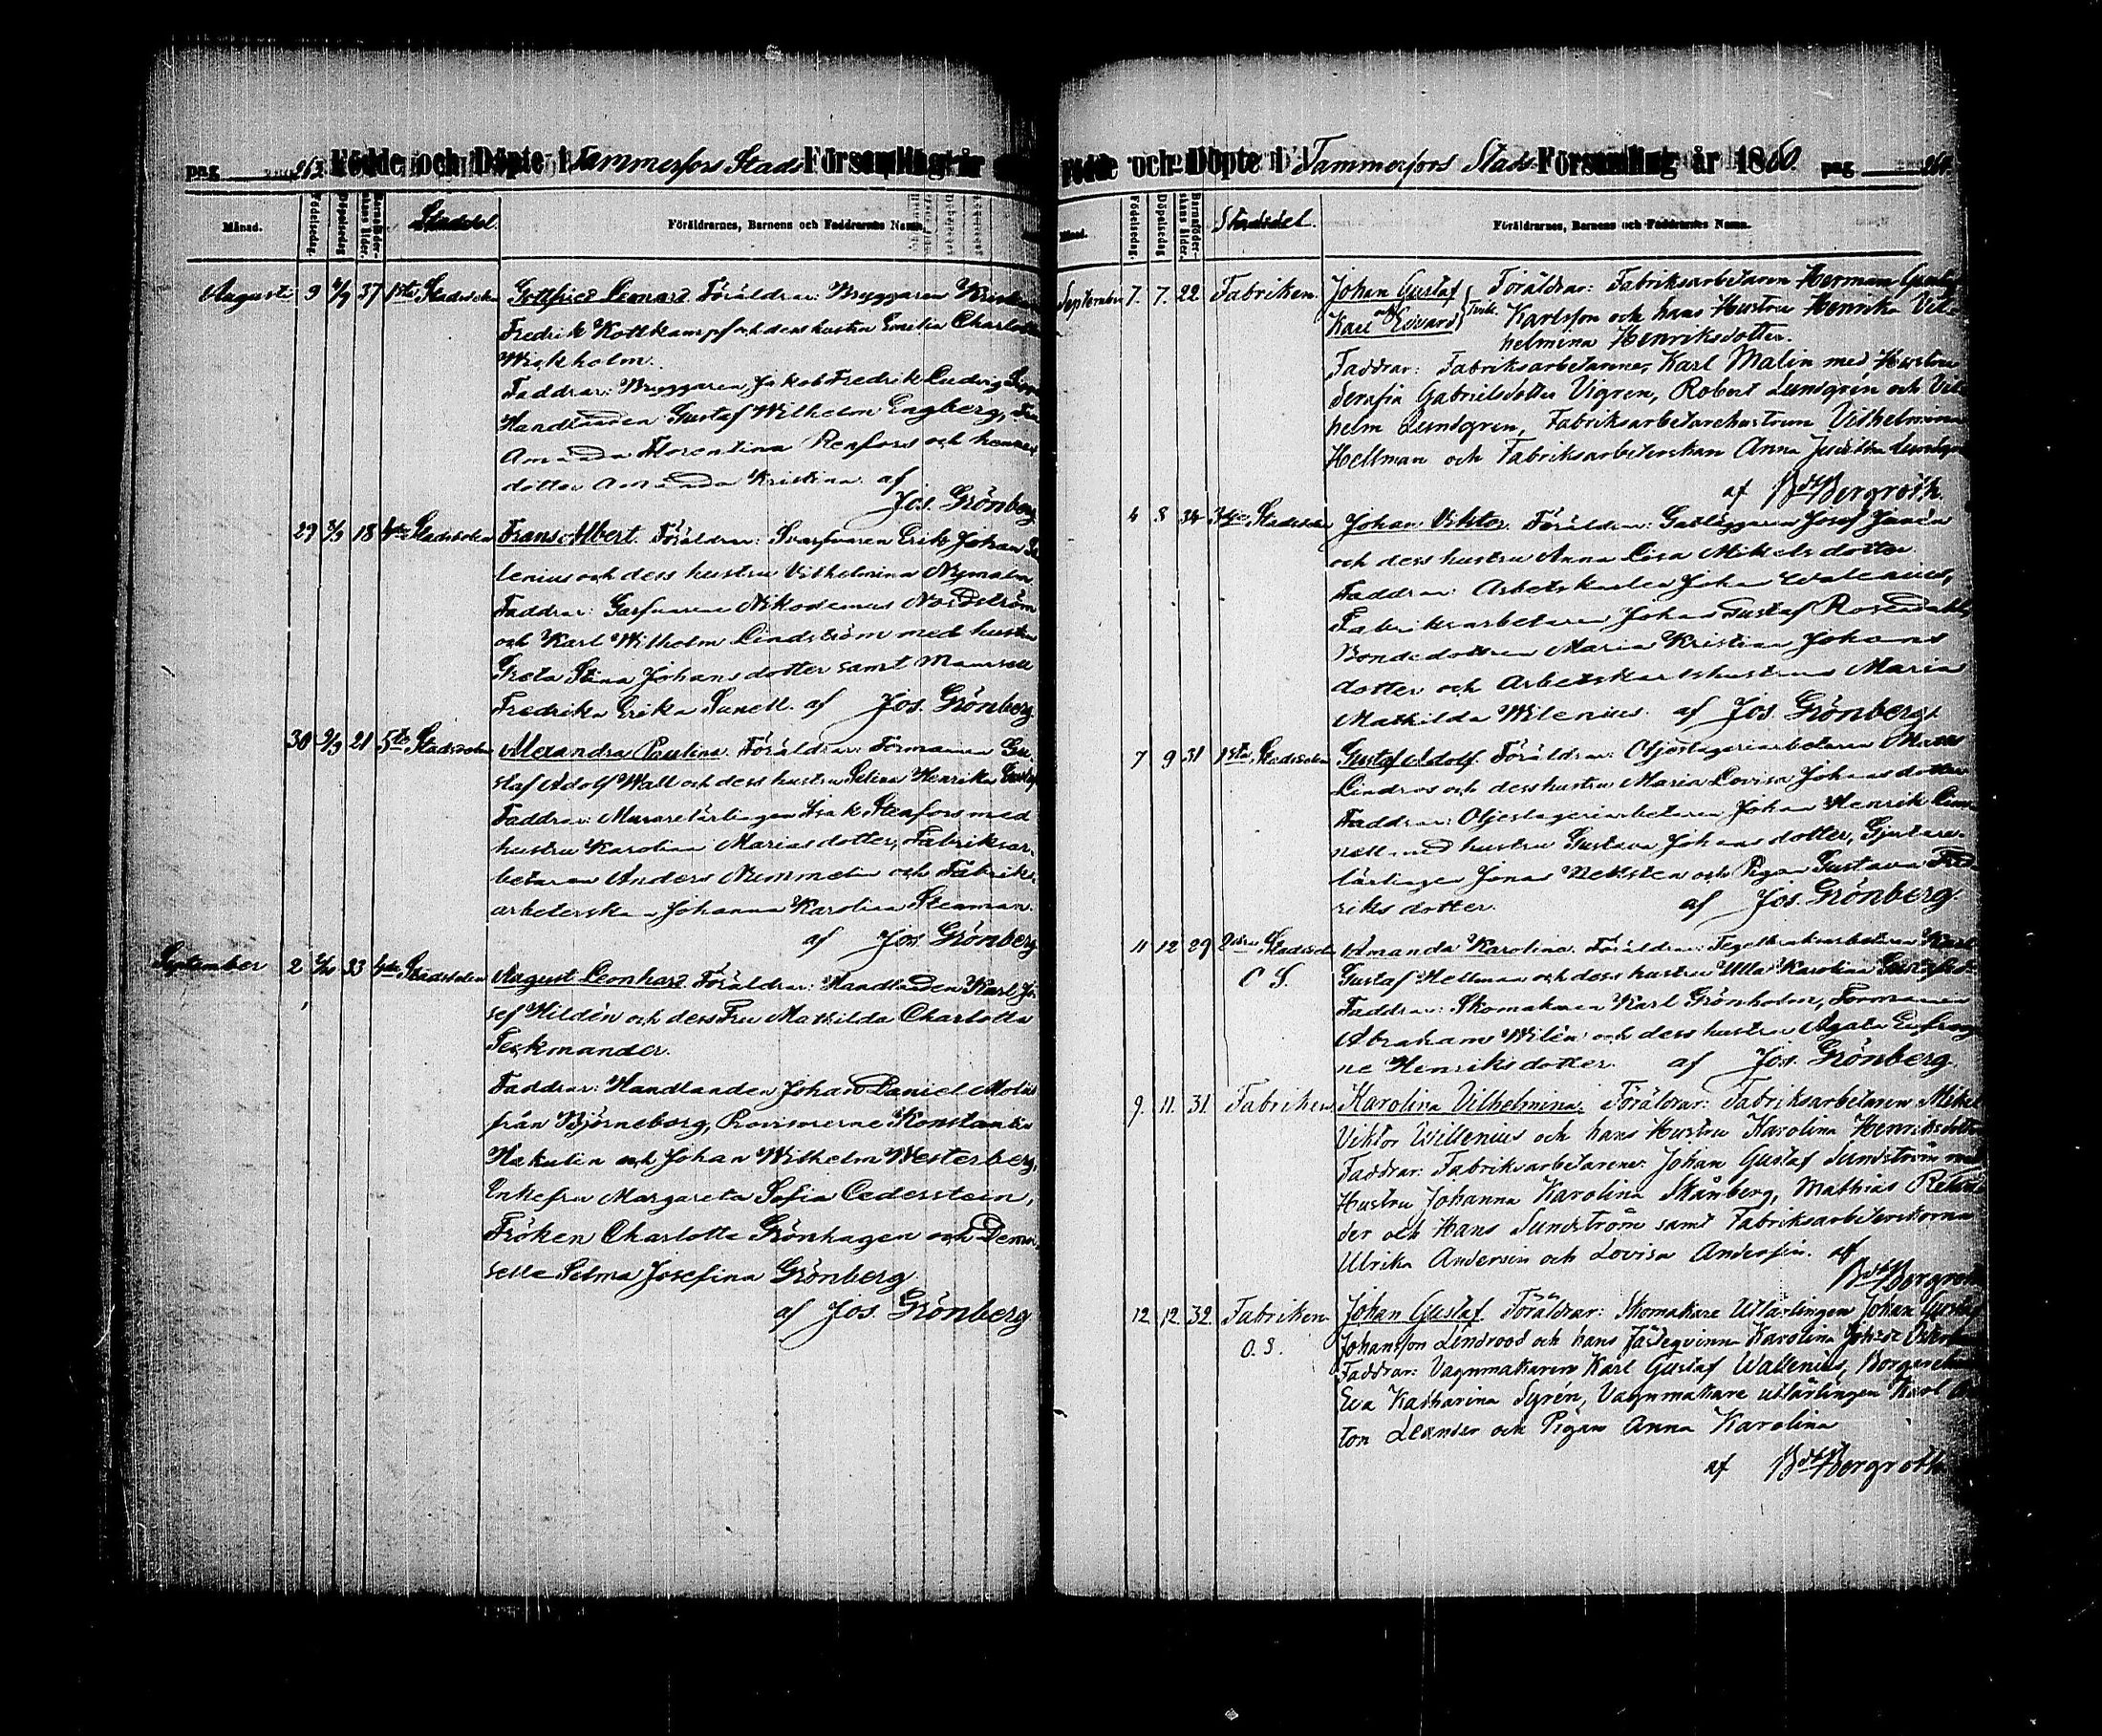 pag 263. Födde och Döpte i Tammerfors Stads Församling år
Månad. Födelsedag. Döpelsedag Barnaföderskans ålder. Stadsdel. Föräldrarnes, Barnens och Faddrarnes Namn.
Augusti 9 2/9 37 1sta Stadsdelen Gottfried Leonard. Föräldrar: Bryggaren
Fredrik Kottkampf och dess hustru Emilia Charlotta
Wickholm.
Faddrar: Bryggaren Jakob Fredrik Ludvig
Handlanden Gustaf Wilhelm Engberg,
Amanda Florentina Renfors och hennes
dotter Amanda Kristina. af
Jos. Grönberg
29 2/9 18 4de Stadsdelen Frans Albert. Föräldrar: Svarfvaren Erik Johan
lenius och dess hustru Vilhelmina Nymalm.
Faddrar: Garfvarene Nikodemus Nordström
och Karl Wilhelm Lindström med hustru
Greta Stina Johansdotter samt Mamsell
Fredrika Erika Sunell. af Jos. Grönberg.
30 2/9 21 5te Stadsdelen Alexandra Paulina. Föräldrar: Formannen Gu-
staf Adolf Wall och dess hustru Selina Henrika
Faddrar: Murarelärlingen Isak Stenfors med
hustru Karolina Mariasdotter, Fabriksar-
betaren Anders Nummelin och Fabriks-
arbeterskan Johanna Karolina Stenman.
af Jos. Grönberg
September 2 33 4de Stadsdelen August Leonhard. Föräldrar: Handlanden Karl Jo-
sef Hildén och dess Fru Mathilda Charlotta
Teckmander.
Faddrar: Handlanden Johan Daniel Molin
från Björneborg, Provisorerne Konstantin
Hakulin och Johan Wilhelm Westerberg,
Enkefru Margareta Sofia Cederstein,
Fröken Charlotta Grönhagen och Demoi-
selle Selma Josefina Grönberg
af Jos. Grönberg
Födde och Döpte i Tammerfors Stads Församling år 1860. pag 264.
Månad. Födelsedag. Döpelsedag Barnaföderskans ålder. Stadsdel. Föräldrarnes, Barnens och Faddrarnes Namn.
September 7. 7. 22. Fabriken. Johan Gustaf Föräldrar: Fabriksarbetaren Herman Gustaf
och Karl Edvard Tvill. Karlsson och hans Hustru Henrika Vil-
helmina Henriksdotter.
Faddrar: Fabriksarbetarene, Karl Malin med Hustru
Serafia Gabrielsdotter Vigren, Robert Lundgrén och Vil-
helm Lundgren, Fabriksarbetarehustrun Vilhelmina
Hellman och Fabriksarbeterskan Anna Juditha Lundgren
af Bergroth.
4 8 34 3dje Stadsdelen Johan Viktor. Föräldrar: Josef Janén
och dess hustru Anna Lisa Mikelsdotter.
Faddrar: Arbetskarlen Johan Walenius,
Fabriksarbetaren Johan Gustaf Rosendahl,
Bondedottren Maria Kristina Johans
dotter och Arbetskarlshustrun Maria
Mathilda Wilenius. af Jos. Grönberg.
7 9 31 1sta Stadsdelen Gustaf Adolf. Föräldrar: Oljeslageriarbetaren Matts
Lindros och dess hustru Maria Lovisa Johansdotter
Faddrar: Oljeslageriarbetaren Johan Henrik
nell med hustru Gustava Johansdotter, Gjutare-
lärlingen Jonas Hellsten och Pigan Gustava Fred-
riksdotter. af Jos. Grönberg.
11 12 29 2dra Stadsdelen Amanda Karolina. Föräldrar: Tegelbruksarbetaren Karl
O S. Gustaf Hellman och dess hustru Ulla Karolina
Faddrar: Skomakaren Karl Grönholm, Formannen
Abraham Wilén och dess hustru Agata Eufrosy-
ne Henriksdotter. af Jos. Grönberg.
9. 11. 31. Fabriken Karolina Vilhelmina. Föräldrar: Fabriksarbetaren Mikel
Viktor Willenius och hans Hustru Karolina Henriksdotter
Faddrar: Fabriksarbetarene: Johan Gustaf Sundström med
Hustru Johanna Karolina Skånberg, Mathias
der och Hans Sundström samt Fabriksarbeterskorna
Ulrika Andersin och Lovisa Andersin. af
Bergroth
12 12 32 Fabriken Johan Gustaf. Föräldrar: Skomakare Utlärlingen Johan Gustaf
O. S. Johansson Lindroos och hans Fästeqvinna Karolina
Faddrar: Vagnmakaren Karl Gustaf Wallenius,
Eva Katharina Syrén, Vagnmakare utlärlingen Karl
ton Leander och Pigan Anna Karolina
af Bergroth